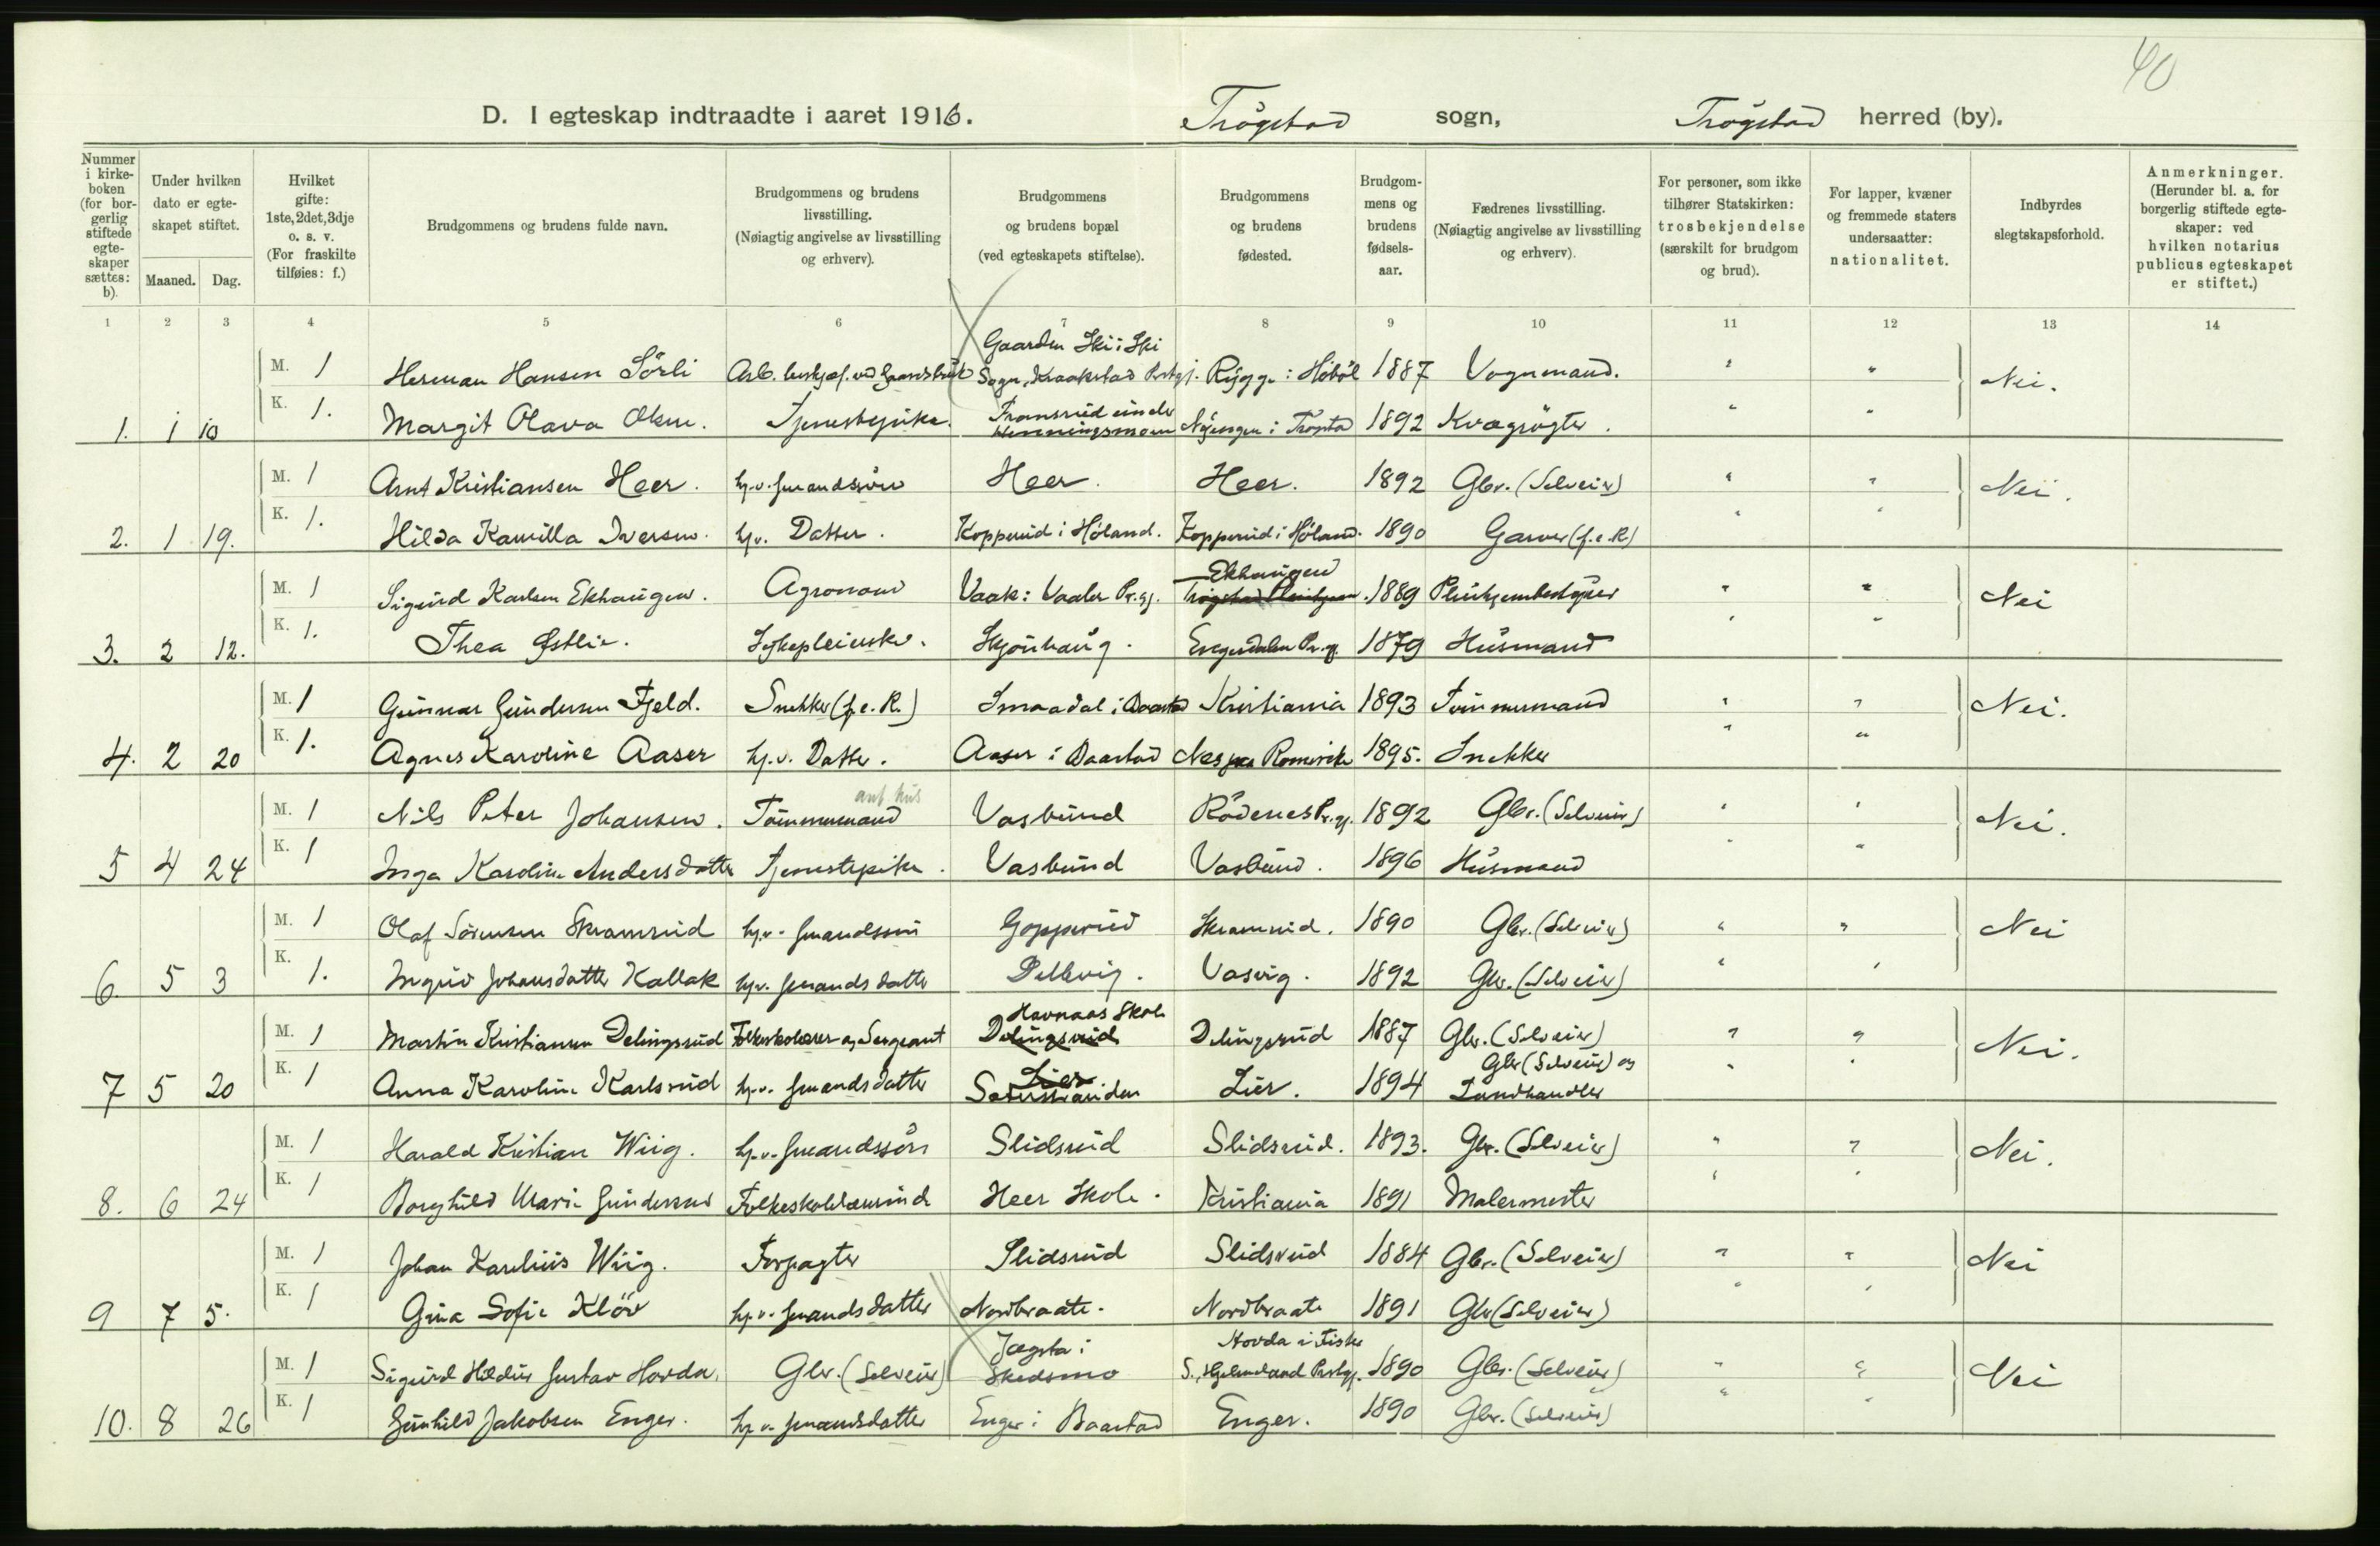 40
D. I egteskap indtraadte i aaret 1916. Trøgstad sogn, Trøgstad herred (by).
Nummer i kirke-boken (for bor-gerlig stiftede egte-skaper sættes: b).
Under hvilken dato er egte-skapet stiftet.
Maaned. Dag.
Hvilket gifte: 1ste, 2det, 3dje o. s. v. (For fraskilte tilføies: f.)
Brudgommens og brudens fulde navn.
Brudgommens og brudens livsstilling. (Nøiagtig angivelse av livsstilling og erhverv).
Brudgommens og brudens bopæl (ved egteskapets stiftelse).
Brudgommens og brudens fødested.
Brudgom-mens og brudens fødsels-aar.
Fædrenes livsstilling. (Nøiagtig angivelse av livsstilling og erhverv).
For personer, som ikke tilhører Statskirken: trosbekjendelse (særskilt for brudgom og brud).
For lapper, kvæner og fremmede staters undersaatter: nationalitet.
Indbyrdes slegtskapsforhold.
Anmerkninger. (Herunder bl. a. for borgerlig stiftede egte-skaper: ved hvilken notarius publicus egteskapet er stiftet.)
1 2 3 4 5 6 7 8 9 10 11 12 13 14
Gaarden Ski i Ski
M. 1 Herman Hansen Sörli Arb. beskjæf. ved Gaardsbruk Sogn, Kraakstad Prstgj. Rygge i Höböl 1887 Vognmand. " " Nei.
1. 1 10 K. 1. Margit Olava Olsen. Tjenestepike. Fransrud under Henningsmoen i Trøgstad 1892 Kvægrögter. " "
M. 1 Arnt Kristiansen Heer. hj.v. gmandssön Heer. Heer. 1892 Gbr. (Selveier) " " Nei.
2. 1 19. K. 1. Hilda Kamilla Iversen. hj.v. Datter. Kopperud i Höland. Kopperud i Höland. 1890 Garver (f.e.R) " "
Ekhaugen
M. 1 Sigurd Karlsen Ekhaugen. Agronom Vaak i Vaaler Pr.gj. Trøgstad Pleiehjem. 1889 Pleiehjembestyrer " " Nei
3. 2 12. K. 1. Thea Østlie. Sykepleierske. Skjönhaug. Pr.gj. 1879 Husmand " "
M. 1 Gunnar Gundersen Fjeld. Snekker (f.e.R.) Smaadal i Baastad Kristiania 1893 Tömmermand " " Nei.
4. 2 20 K. 1. Agnes Karoline Aaser hj.v. Datter. Aaser i Baastad Nes paa Romerike 1895. Snekker " "
M. 1 Nils Peter Johansen. Tömmermand Vasbund Rödenes Pr.gj. 1892 Gbr. (Selveier) " " Nei.
5 4 24 K. 1 Inga Karoline Andersdatter Tjenestepike. Vasbund Vasbund. 1896 Husmand " "
M. 1 Olaf Sörensen Skramrud hj.v. gmandssön Gopperud Skramrud. 1890 Gbr. (Selveier) " " Nei
6. 5 3 K. 1. Ingrid Johansdatter Kallak hj.v. gmandsdatter Dillevig. Vasvig. 1892 Gbr. (Selveier) " "
Havnaas Skole
M. 1 Martin Kristiansen Delingsrud Folkeskolelærer og Sergeant Delingsrud Delingsrud 1887 Gbr. (Selveier) " " Nei.
Lier Gbr (Selveier) og
7 5 20 K. 1 Anna Karoline Karlsrud hj.v. gmandsdatter Lier. 1894 Landhandler " "
M. 1 Harald Kristian Wiig. hj.v. gmandssön Slidsrud Slidsrud. 1893. Gbr. (Selveier) " " Nei.
8. 6 24 K. 1 Borghild Marie Gundersen Folkeskolelærerinde Heer Skole. Kristiania 1891 Malermester " "
M. 1 Johan Karelius Wiig. Forpagter Slidsrud Slidsrud 1884 Gbr. (Selveier) " " Nei
9 7 5. K. 1 Gina Sofie Klöv hj.v. gmandsdatter Nordbraate. Nordbraate 1891 Gbr (Selveier) " "
Jægsta i Hovda i Fister
M. 1 Sigurd Hildus Gustav Hovda. Gbr. (Selveier) Skedsmo S., Hjelmeland Prstgj. 1890 Gbr. (Selveier) " " Nei
10. 8 26 K. 1 Gunhild Jakobsen Enger. hj.v. gmandsdatter Enger i Baastad Enger. 1890 Gbr. (Selveier) " "